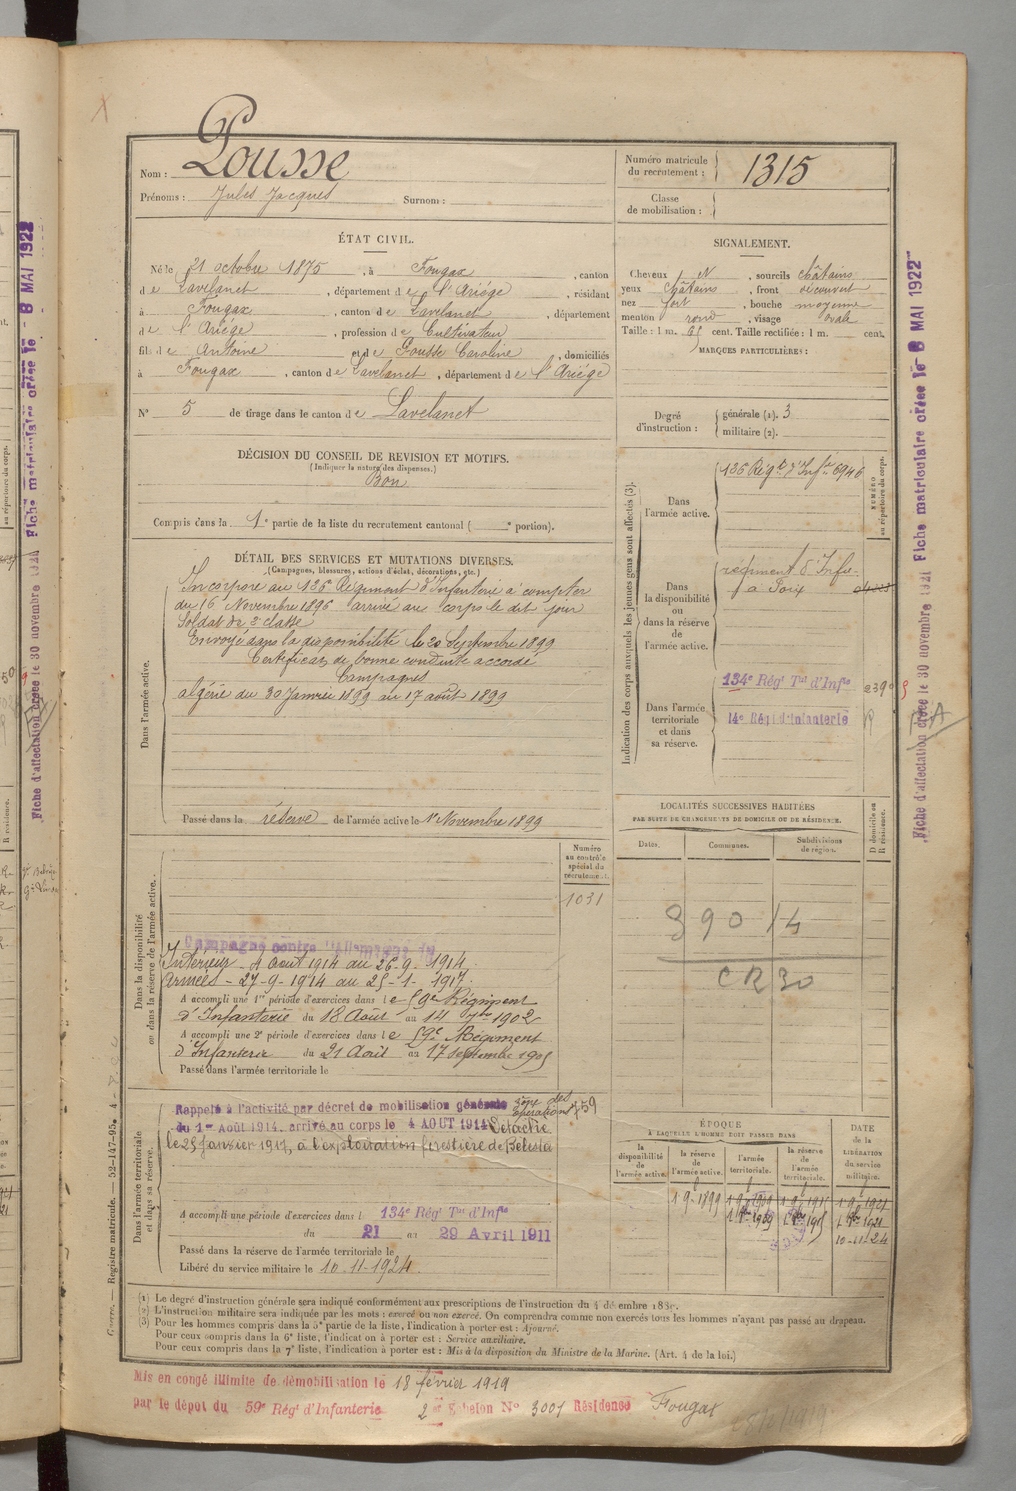 Nom : Pousse
Prénoms : Jules Jacques Surnom :
Numéro matricule du recrutement : 1315
Classe de mobilisation :
ÉTAT CIVIL.
Né le 21 octobre 1875, à Fougax, canton
de Lavelanet, département de l'Ariège, résidant
à Fougax, canton de Lavelanet, département
de l'Ariège, profession de Cultivateur
fils de Antoine et de Gousse Caroline, domiciliés
à Fougax, canton de Lavelanet, département de l'Ariège
N° 5 de tirage dans le canton de Lavelanet
SIGNALEMENT.
Cheveux N, sourcils châtains
yeux châtains, front découvert
nez fort, bouche moyenne
menton rond, visage ovale
Taille : 1 m. 65 cent. Taille rectifiée : 1 m. cent.
MARQUES PARTICULIÈRES :
Degré d'instruction : générale (1). 3
militaire (2).
DÉCISION DU CONSEIL DE REVISION ET MOTIFS.
(Indiquer la nature des dispenses.)
Bon
Compris dans la 1e partie de la liste du recrutement cantonal ( e portion).
DÉTAIL DES SERVICES ET MUTATIONS DIVERSES.
(Campagnes, blessures, actions d'éclat, décorations, etc.)
Dans l'armée active.
Incorporé au 126e Régiment d'Infanterie à compter
du 16 Novembre 1896 arrivé au corps le dit jour
Soldat de 2e classe
Envoyé dans la disponibilité le 20 Septembre 1899
Certificat de bonne conduite accordé
Campagnes
algérie du 30 Janvier 1899 au 17 août 1899
Passé dans la réserve de l'armée active le 1er Novembre 1899
Indication des corps auxquels les jeunes gens sont affectés (3).
NUMÉRO au répertoire du corps.
Dans l'armée active.
126 Régt d'Infie 6946
Dans la disponibilité ou dans la réserve de l'armée active.
régiment d'Infie
à Foix
Dans l'armée territoriale et dans sa réserve.
134e Régt Tal d'Infie 2390
14e Régt d'Infanterie
LOCALITÉS SUCCESSIVES HABITÉES
PAR SUITE DE CHANGEMENTS DE DOMICILE OU DE RÉSIDENCE.
Dates. Communes. Subdivisions de région. D domicile ou R résidence.
890 14
CR 30
Dans la disponibilité ou dans la réserve de l'armée active.
Numéro au contrôle spécial du recrutement.
1031
Campagne contre l'Allemagne du
Intérieur - 4 août 1914 au 26-9-1914
Armées - 27-9-1914 au 25-1-1917
A accompli une 1re période d'exercices dans le 59e Régiment
d'Infanterie du 18 Août au 14 7bre 1902
A accompli une 2e période d'exercices dans le 59e Régiment
d'Infanterie du 21 Août au 17 septembre 1905
Passé dans l'armée territoriale le
Dans l'armée territoriale et dans sa réserve.
Rappelé à l'activité par décret de mobilisation générale zone des opérations 59
du 1er Août 1914. arrivé au corps le 4 AOUT 1914 Détaché
le 25 Janvier 1917, à l'exploitation forestière de Belesta
A accompli une période d'exercices dans l 134e Régt Tal d'Infie
du 21 au 29 Avril 1911
Passé dans la réserve de l'armée territoriale le
Libéré du service militaire le 10-11-1924
ÉPOQUE
A LAQUELLE L'HOMME DOIT PASSER DANS
la disponibilité de l'armée active. la réserve de l'armée active. l'armée territoriale. la réserve de l'armée territoriale.
DATE de la LIBÉRATION du service militaire.
1-9-1899 1-9-1909 1-9-1915 1-9-1921
1 9bre 1909 1 9bre 1915 1 9bre 1921
10-11-24
(1) Le degré d'instruction générale sera indiqué conformément aux prescriptions de l'instruction du 4 décembre 1889.
(2) L'instruction militaire sera indiquée par les mots : exercé ou non exercé. On comprendra comme non exercés tous les hommes n'ayant pas passé au drapeau.
(3) Pour les hommes compris dans la 5e partie de la liste, l'indication à porter est : Ajourné.
Pour ceux compris dans la 6e liste, l'indication à porter est : Service auxiliaire.
Pour ceux compris dans la 7e liste, l'indication à porter est : Mis à la disposition du Ministre de la Marine. (Art. 4 de la loi.)
Mis en congé illimité de démobilisation le 18 février 1919
par le dépôt du 59e Régt d'Infanterie 2e Echelon N° 3005 Résidence Fougax
Guerre. — Registre matricule. — 52-147-95.
Fiche d'affectation créée le 30 novembre 1921 Fiche matriculaire créée le 8 MAI 1922
Fiche d'affectation créée le 30 novembre 1921 Fiche matriculaire créée le 8 MAI 1922